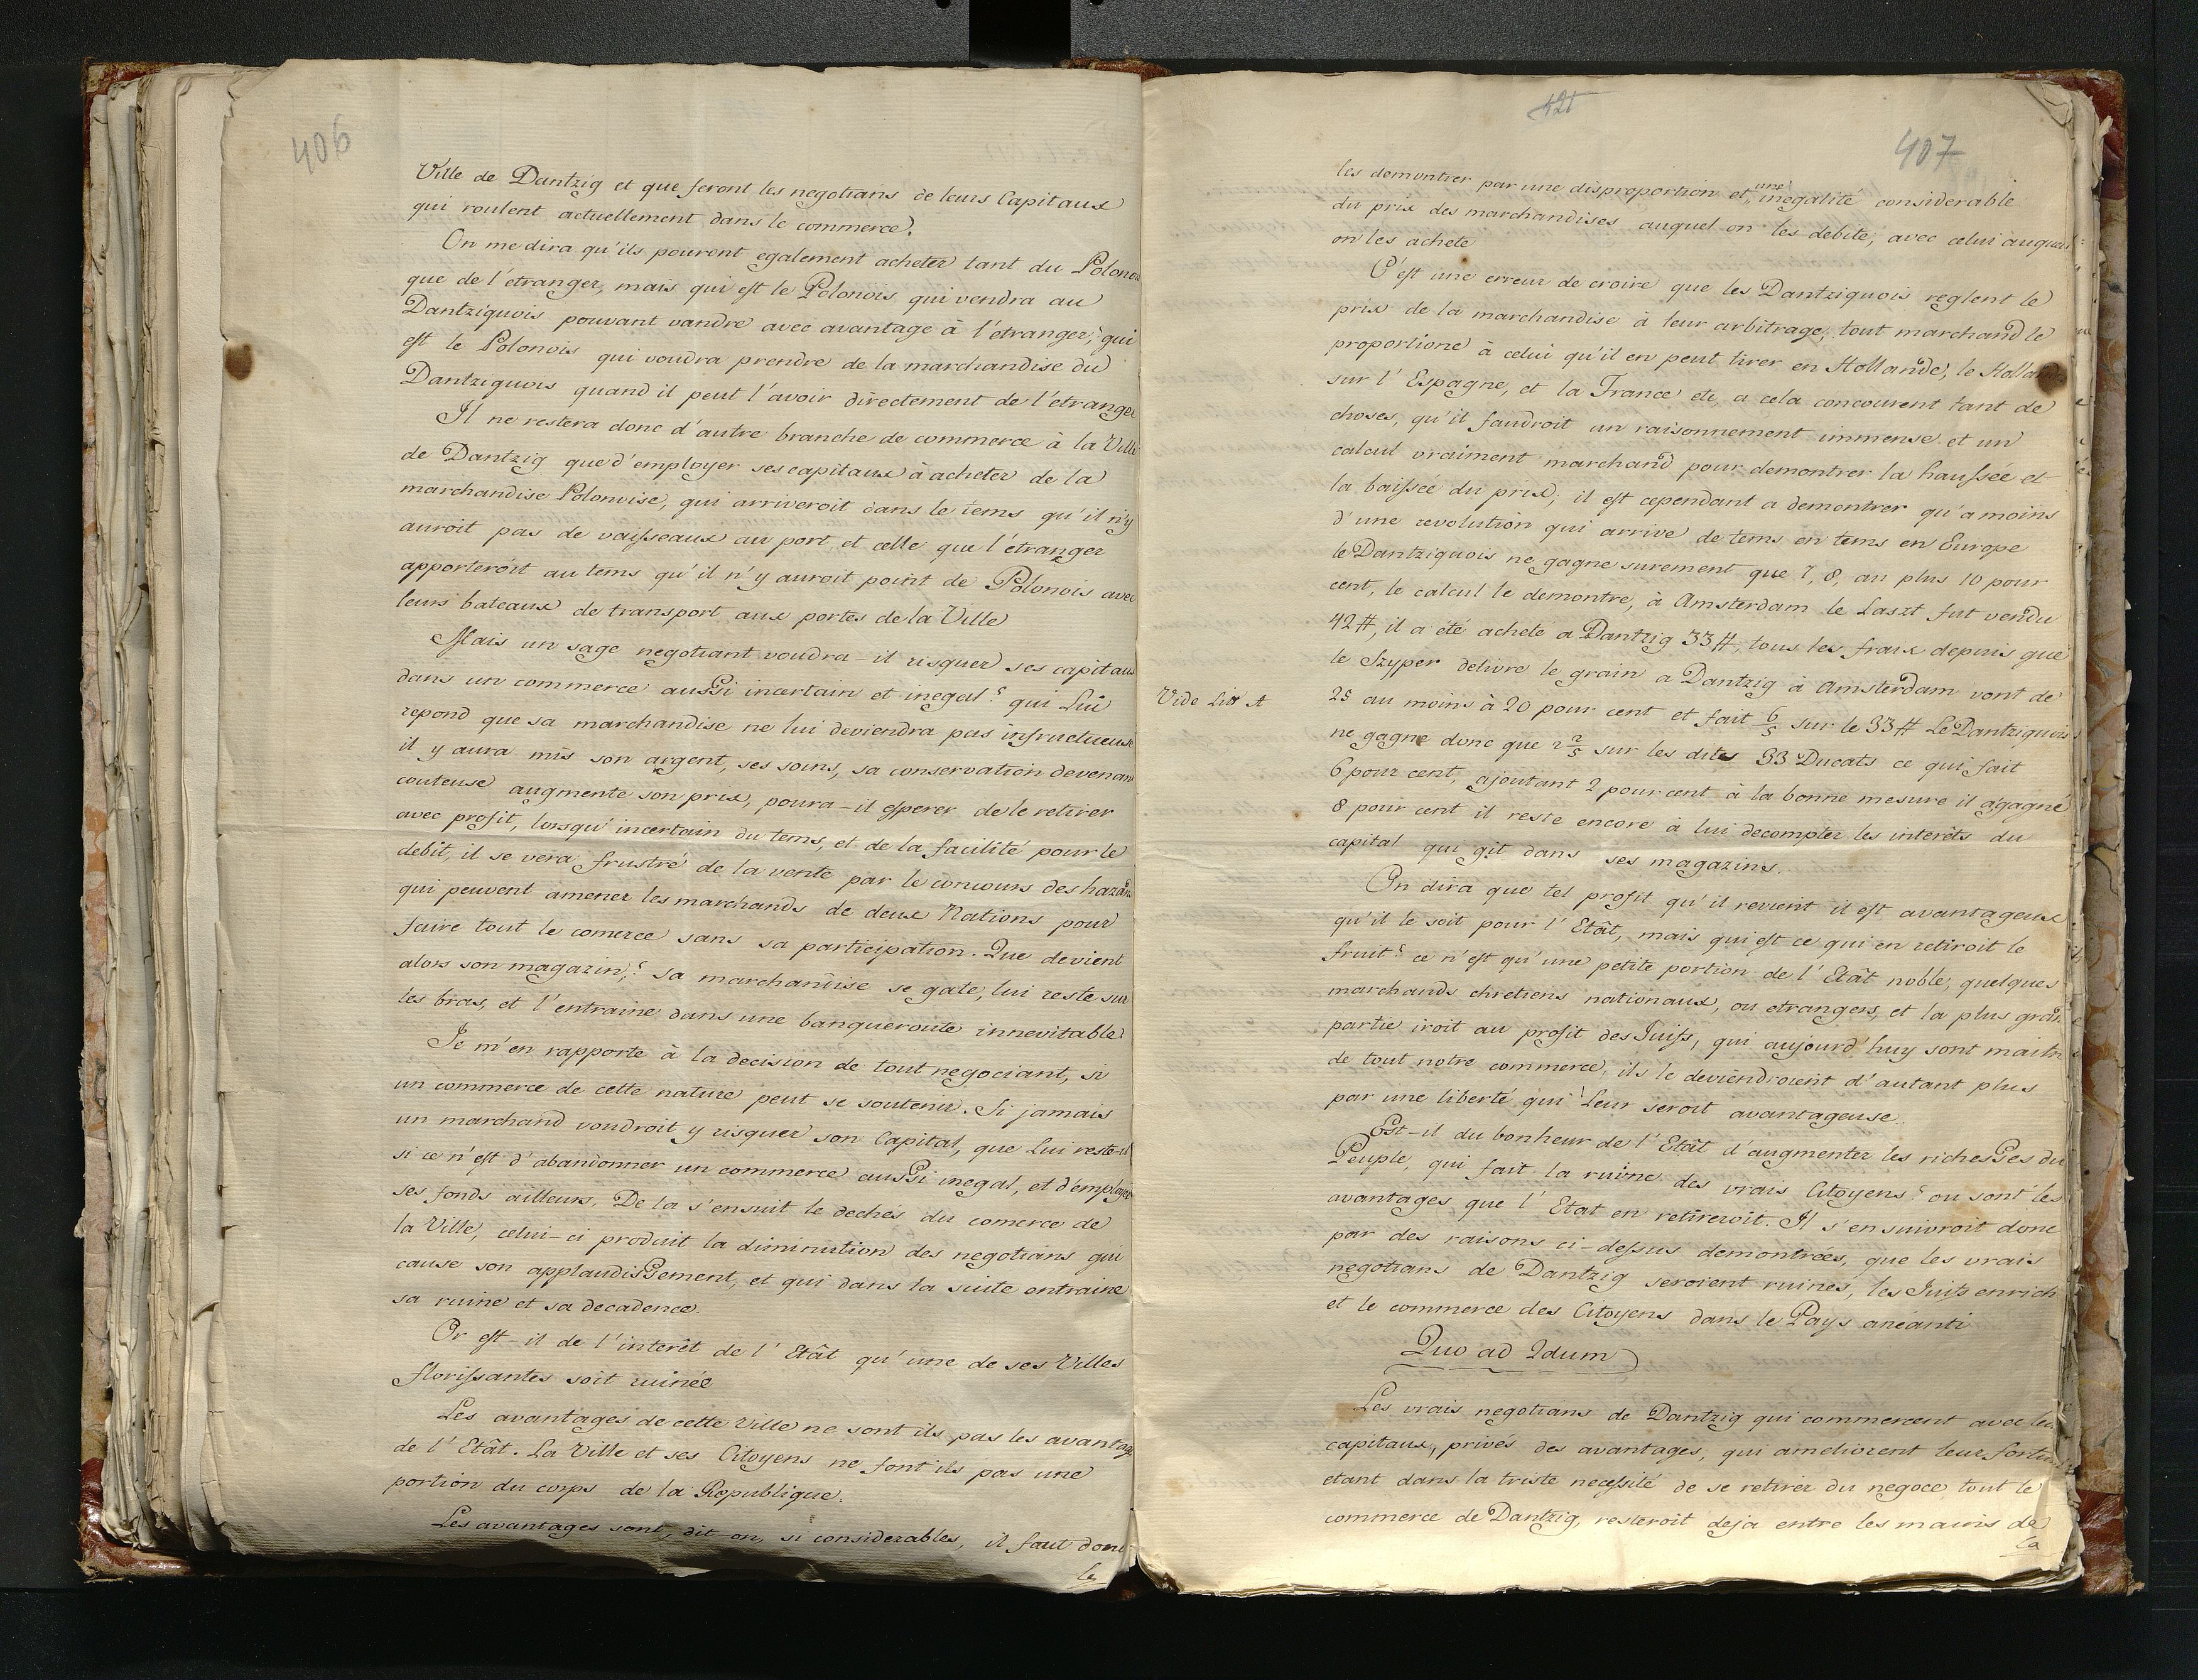 406
Ville de Dantzig et que feront les negotians de leurs Capitaux
qui roulent actuellement dans le commerce.
On me dira qu'ils pouront egalement acheter tant du Polonois
que de l'etranger, mais qui est le Polonois qui vendra au
Dantziquois pouvant vandre avec avantage à l'etranger; qui
est le Polonois qui voudra prendre de la marchandise du
Dantziquois quand il peut l'avoir directement de l'etranger
Il ne restera donc d'autre branche de commerce à la Ville
de Dantzig que d'employer ses capitaux à acheter de la
marchandise Polonoise, qui arriveroit dans le tems qu'il n'y
auroit pas de vaisseaux au port, et celle que l'etranger
apporteroit au tems qu'il n'y auroit point de Polonois avec
leurs bateaux de transport aux portes de la Ville
Mais un sage negotiant voudra-il risquer ses capitaux
dans un commerce aussi incertain et inegal? qui Lui
repond que sa marchandise ne lui deviendra pas infructueuse
il y aura mis son argent, ses soins, sa conservation devenant
couteuse augmente son prix, poura-il esperer de le retirer
avec profit, lorsqu'incertain du tems, et de la facilité pour le
debit, il se vera frustré de la vente par le concours des hazards
qui peuvent amener les marchands de deux Nations pour
faire tout le comerce sans sa participation. Que devient
alors son magazin,? sa marchandise se gate, lui reste sur
les bras, et l'entraine dans une banqueroute innevitable
Je m'en rapporte à la decision de tout negociant, si
un commerce de cette nature peut se soutenir. Si jamais
un marchand voudroit y risquer son Capital, que Lui reste-il
si ce n'est d'abandonner un commerce aussi inegal, et d'employer
ses fonds ailleurs. De la s'ensuit le deches du comerce de
la Ville, celui-ci produit la diminution des negotians qui
cause son applaudissement, et qui dans la suite entraine
sa ruine et sa decadence.
Or est-il de l'interêt de l'Etât qu'une de ses Villes
florissantes soit ruinée
Les avantages de cette Ville ne sont ils pas les avantages
de l'Etât. La Ville et ses Citoyens ne font ils pas une
portion du corps de la Republique.
Les avantages sont, dit-on, si considerables, il faut donc
les
421
407
les demontrer par une disproportion et une inegalité considerable
du prix des marchandises auquel on les debite, avec celui auquel
on les achete
C'est une erreur de croire que les Dantziquois reglent le
prix de la marchandise à leur arbitrage, tout marchand le
proportione à celui qu'il en peut tirer en Hollande, le Holland
sur l'Espagne, et la France etc, a cela concourent tant de
choses, qu'il faudroit un raisonnement immense et un
calcul vraiment marchand pour demontrer la haussée et
la baissée du prix, il est cependant a demontrer qu'a moins
d'une revolution qui arrive de tems en tems en Europe
le Dantziquois ne gagne surement que 7, 8, au plus 10 pour
cent, le calcul le demontre, à Amsterdam le Laszt fut vendu
42#, il a été acheté a Dantzig 33#, tous les fraix depuis que
le Szyper delivre le grain a Dantzig à Amsterdam vont de
Vide Litt A
25 au moins à 20 pour cent et fait 6/5 sur le 33# Le Dantziquois
ne gagne donc que 2 2/5 sur les dites 33 Ducats ce qui fait
6 pour cent, ajoutant 2 pour cent à la bonne mesure il a gagné
8 pour cent il reste encore à lui decompter les interêts du
capital qui git dans ses magazins.
On dira que tel profit qu'il revient il est avantageux
qu'il le soit pour l'Etât, mais qui est ce qui en retiroit le
fruit? ce n'est qu'une petite portion de l'Etât noble, quelques
marchands chretiens nationaux, ou etrangers, et la plus grande
partie iroit au profit des Juifs, qui aujourd'huy sont maitres
de tout notre commerce, ils le deviendroient d'autant plus
par une liberté qui Leur seroit avantageuse.
Est-il du bonheur de l'Etât d'augmenter les richesses du
Peuple, qui fait la ruine des vrais Citoyens? ou sont les
avantages que l'Etat en retireroit. Il s'ensuivroit donc
par des raisons ci-dessus demontrées, que les vrais
negotians de Dantzig seroient ruinés, les Juifs enrich
et le commerce des Citoyens dans le Pays anéanti
Quo ad 2dum
Les vrais negotians de Dantzig qui commercent avec leurs
capitaux, privés des avantages, qui ameliorent leur fortune
etant dans la triste necessité de se retirer du negoce, tout le
commerce de Dantzig, resteroit deja entre les mains de
la